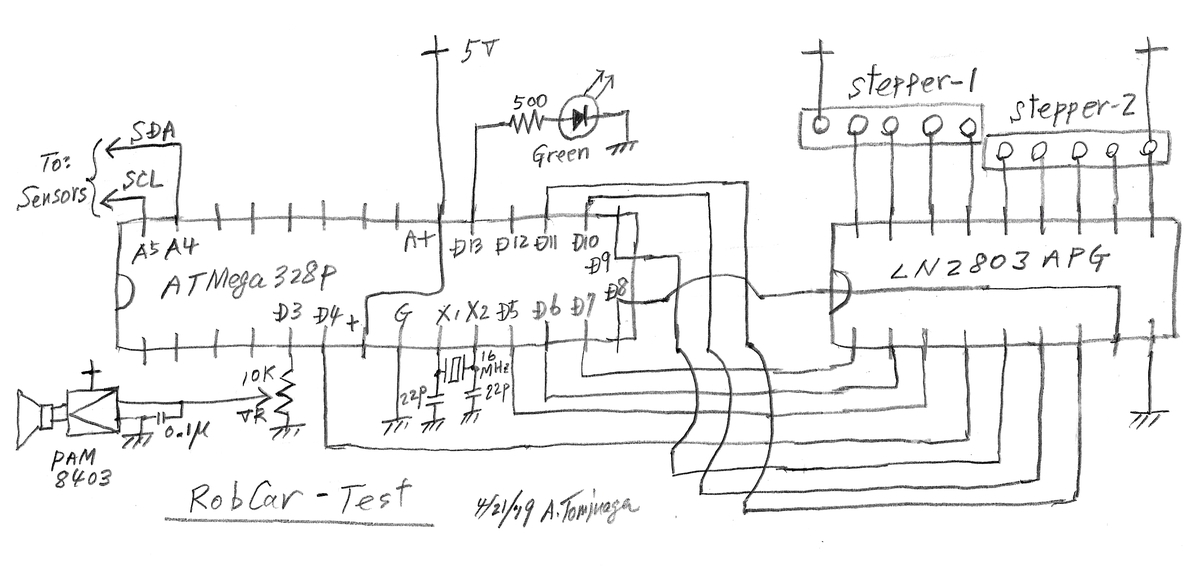 5V
stepper-1
500
stepper-2
Green
SDA
To:
Sensors
SCL
A5 A4
A+
D13 D12 D11 D10
D9
ATMega 328P
LN2803APG
D8
D3 D4 +
G X1 X2 D5 D6 D7
16
MHz
10K
22P
22P
VR
0.1μ
PAM
8403
RobCar - Test
A. Tominaga